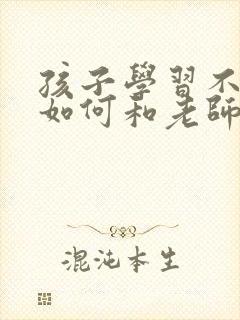 孩子學習不
如何和老師
混沌本生